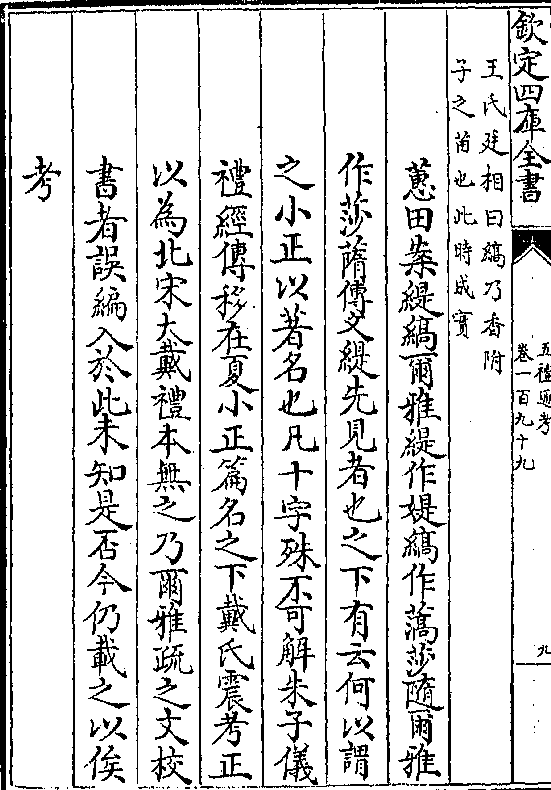 欽定四庫全書
五禮通考
卷一百九十九
九
王氏廷相曰縞乃香附
子之苗也此時成實
蕙田案緹縞爾雅緹作媞縞作蒿莎隨爾雅
作莎蓨傳文緹先見者也之下有云何以謂
之小正以著名也凡十字殊不可解朱子儀
禮經傳移在夏小正篇名之下戴氏震考正
以為北宋大戴禮本無之乃爾雅疏之文校
書者誤編入於此未知是否今仍載之以俟
考